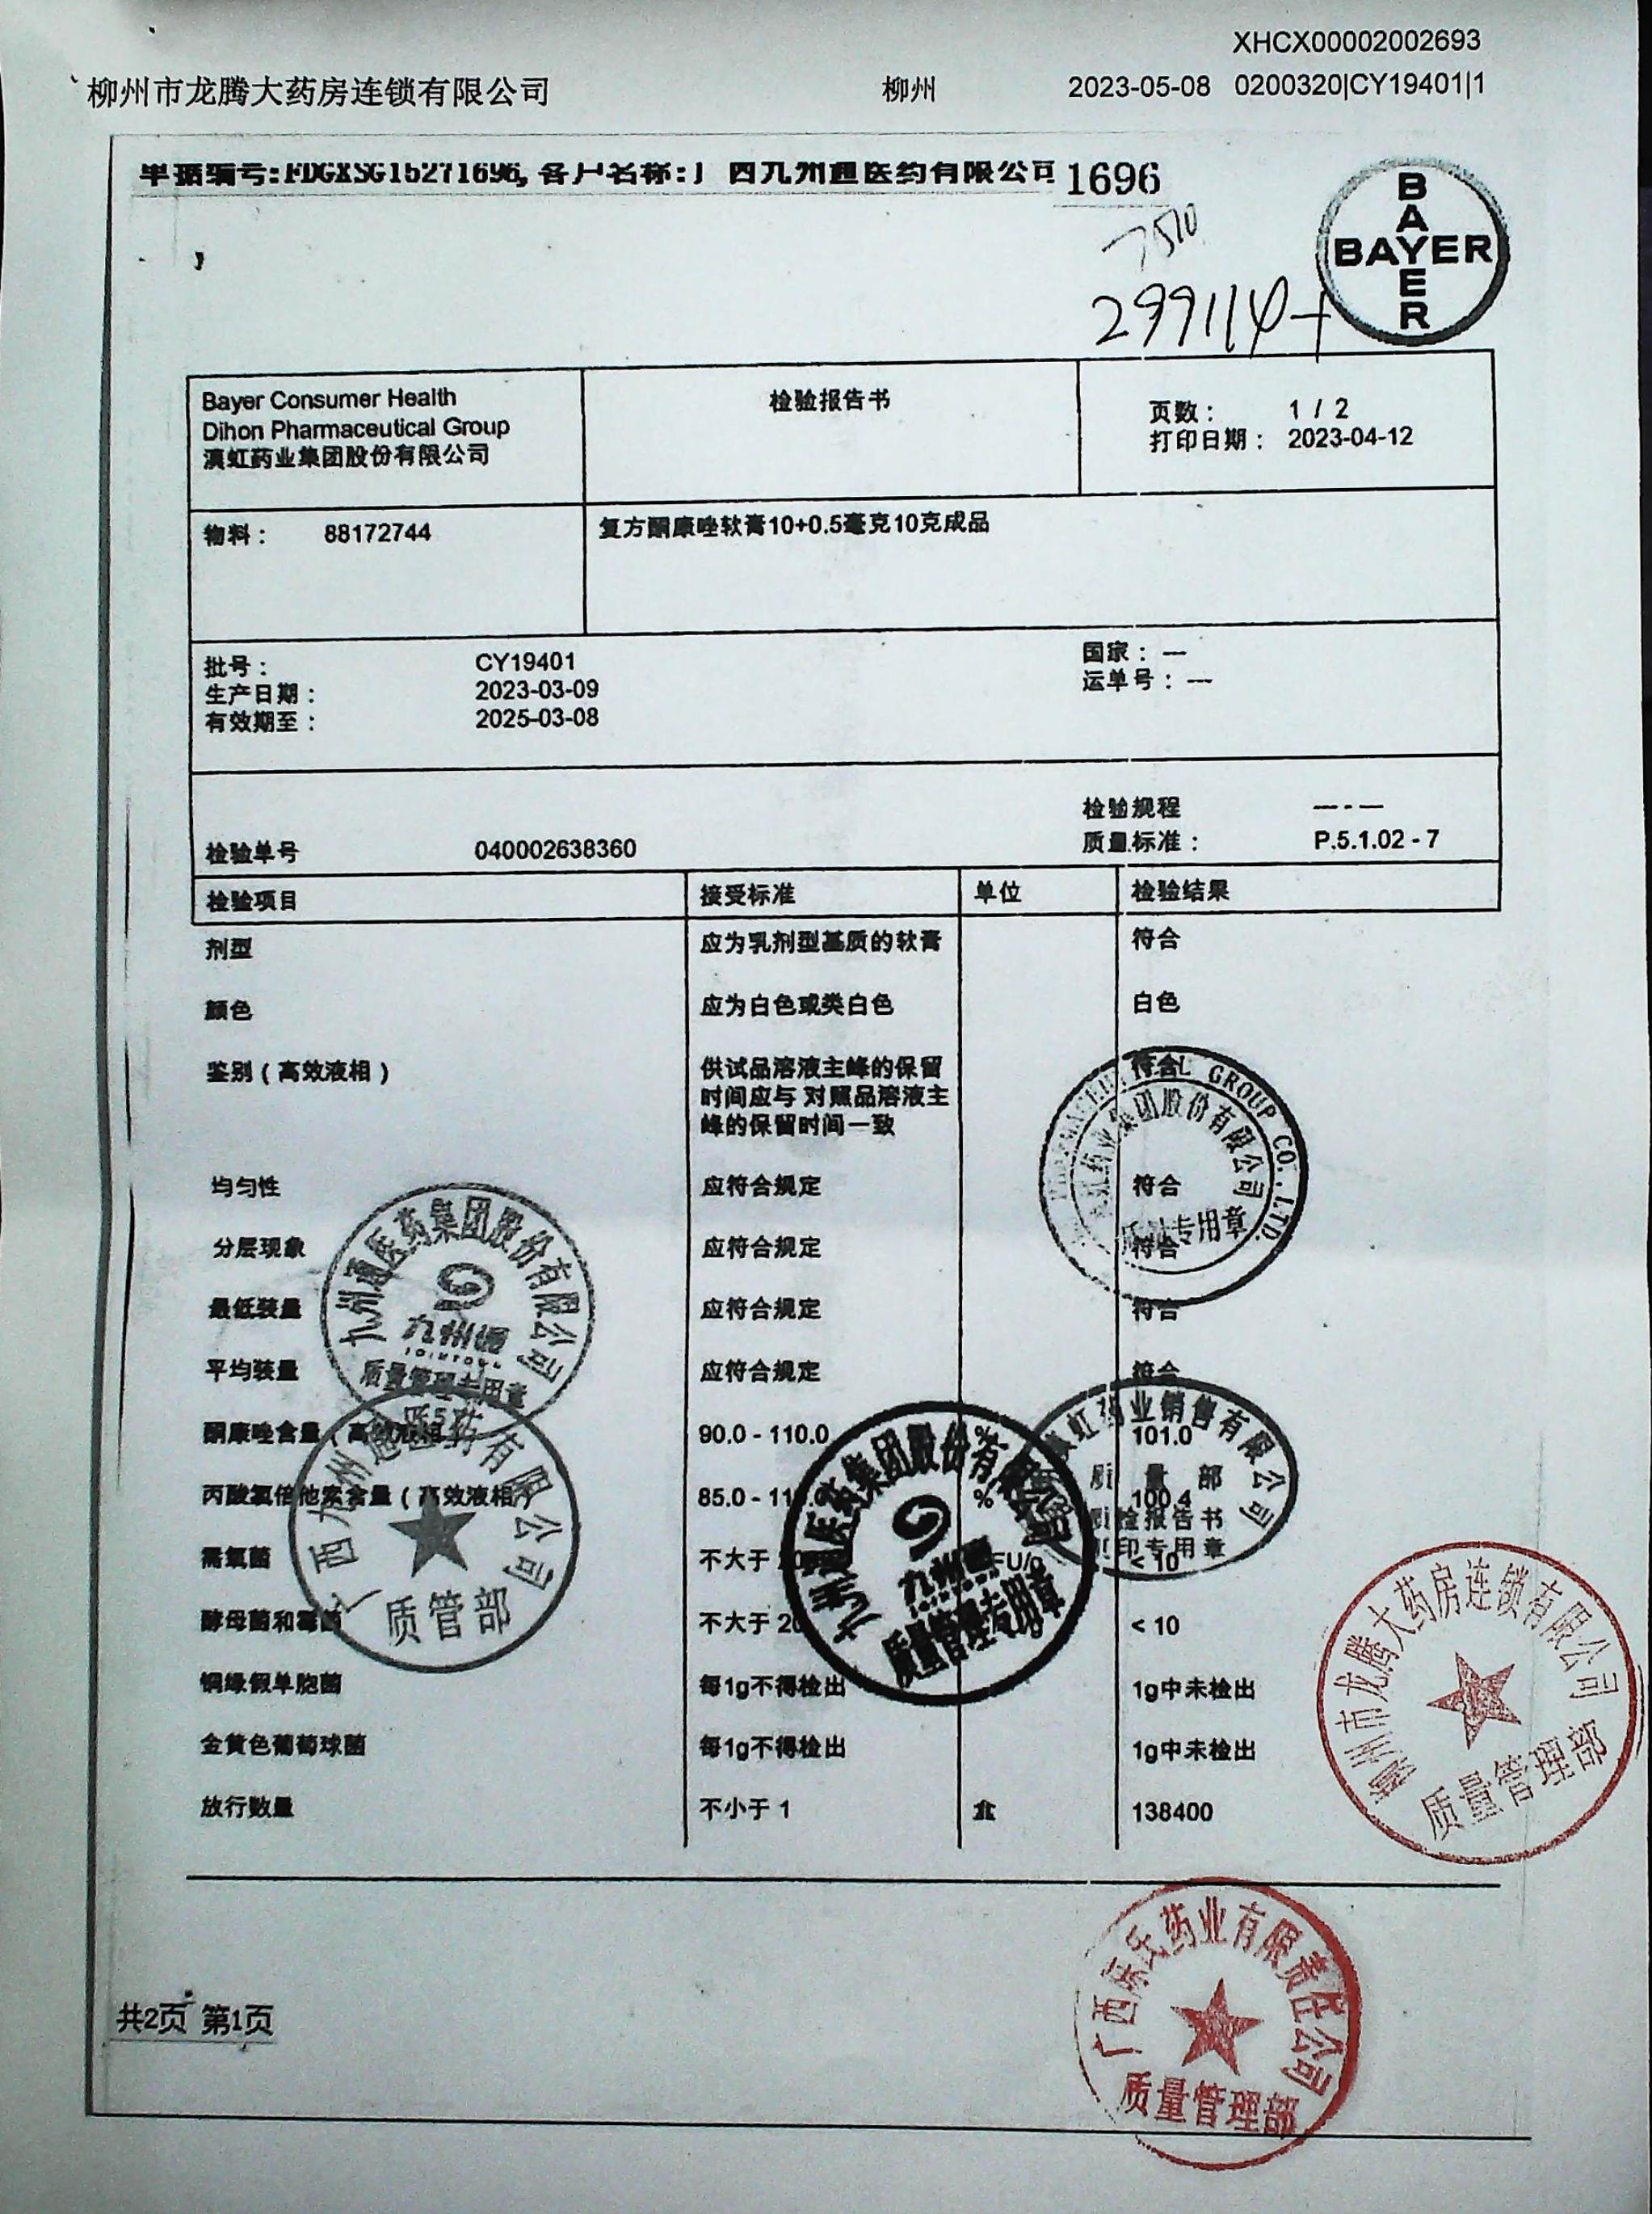 XHCX00002002693
柳州市龙腾大药房连锁有限公司 柳州 2023-05-08 0200320|CY19401|1
单据编号:FDGXSG15271696,客户名称:广西九州通医药有限公司 1696
7510
299114
BAYER
BAYER
Bayer Consumer Health
Dihon Pharmaceutical Group
滇虹药业集团股份有限公司
检验报告书
页数: 1 / 2
打印日期: 2023-04-12
物料: 88172744 复方酮康唑软膏10+0.5毫克10克成品
批号: CY19401 国家: —
生产日期: 2023-03-09 运单号: —
有效期至: 2025-03-08
检验规程 — - —
检验单号 040002638360 质量标准: P.5.1.02 - 7
检验项目 接受标准 单位 检验结果
剂型 应为乳剂型基质的软膏 符合
颜色 应为白色或类白色 白色
鉴别(高效液相) 供试品溶液主峰的保留 符合
时间应与 对照品溶液主
峰的保留时间一致
均匀性 应符合规定 符合
分层现象 应符合规定 符合
最低装量 应符合规定 符合
平均装量 应符合规定 符合
酮康唑含量(高效液相 90.0 - 110.0 % 101.0
丙酸氯倍他索含量(高效液相) 85.0 - 11 % 100.4
需氧菌 不大于 FU/g < 10
酵母菌和霉菌 不大于 20 < 10
铜绿假单胞菌 每1g不得检出 1g中未检出
金黄色葡萄球菌 每1g不得检出 1g中未检出
放行数量 不小于 1 盒 138400
GROUP CO.,LTD.
药业集团股份有限公司
质检专用章
九州通医药集团股份有限公司
九州通
JOINTOWN
质量管理专用章
广西九州通医药有限公司
质管部
九州通医药集团股份有限公司
九州通
质量管理专用章
虹药业销售有限公司
质量部
质检报告书
复印专用章
柳州市龙腾大药房连锁有限公司
质量管理部
广西乐氏药业有限责任公司
质量管理部
共2页 第1页